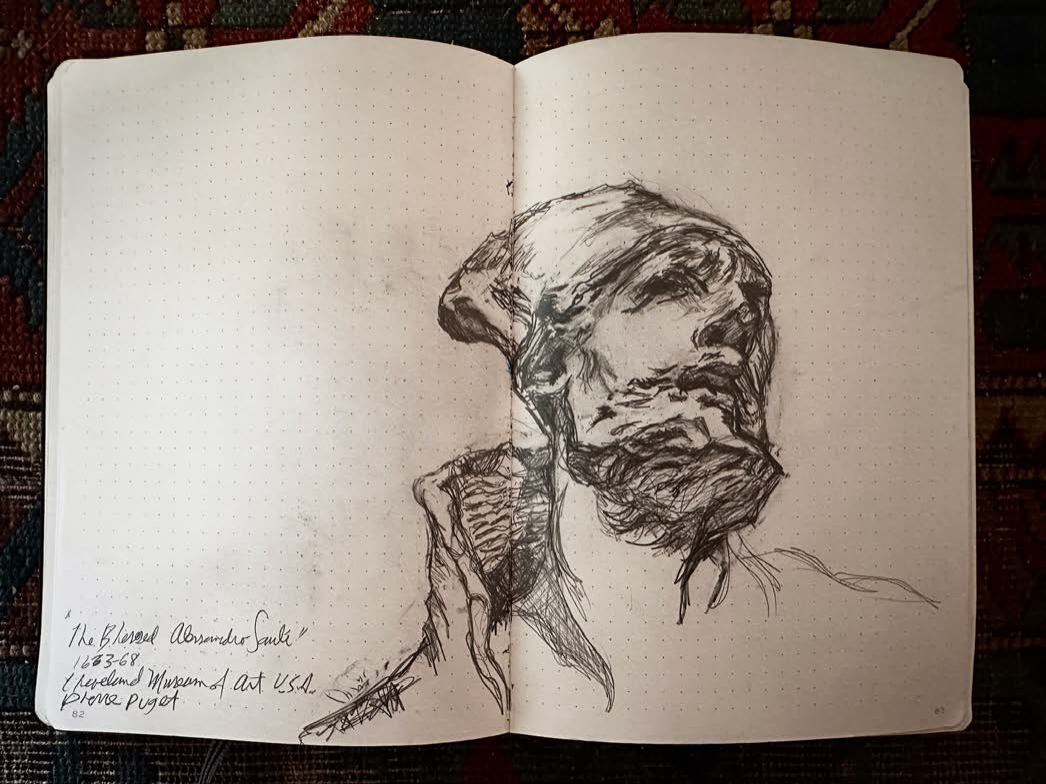 "The Blessed Alessandro Sauli"
1663-68
Cleveland Museum of Art U.S.A.
Pierre Puget
82
83